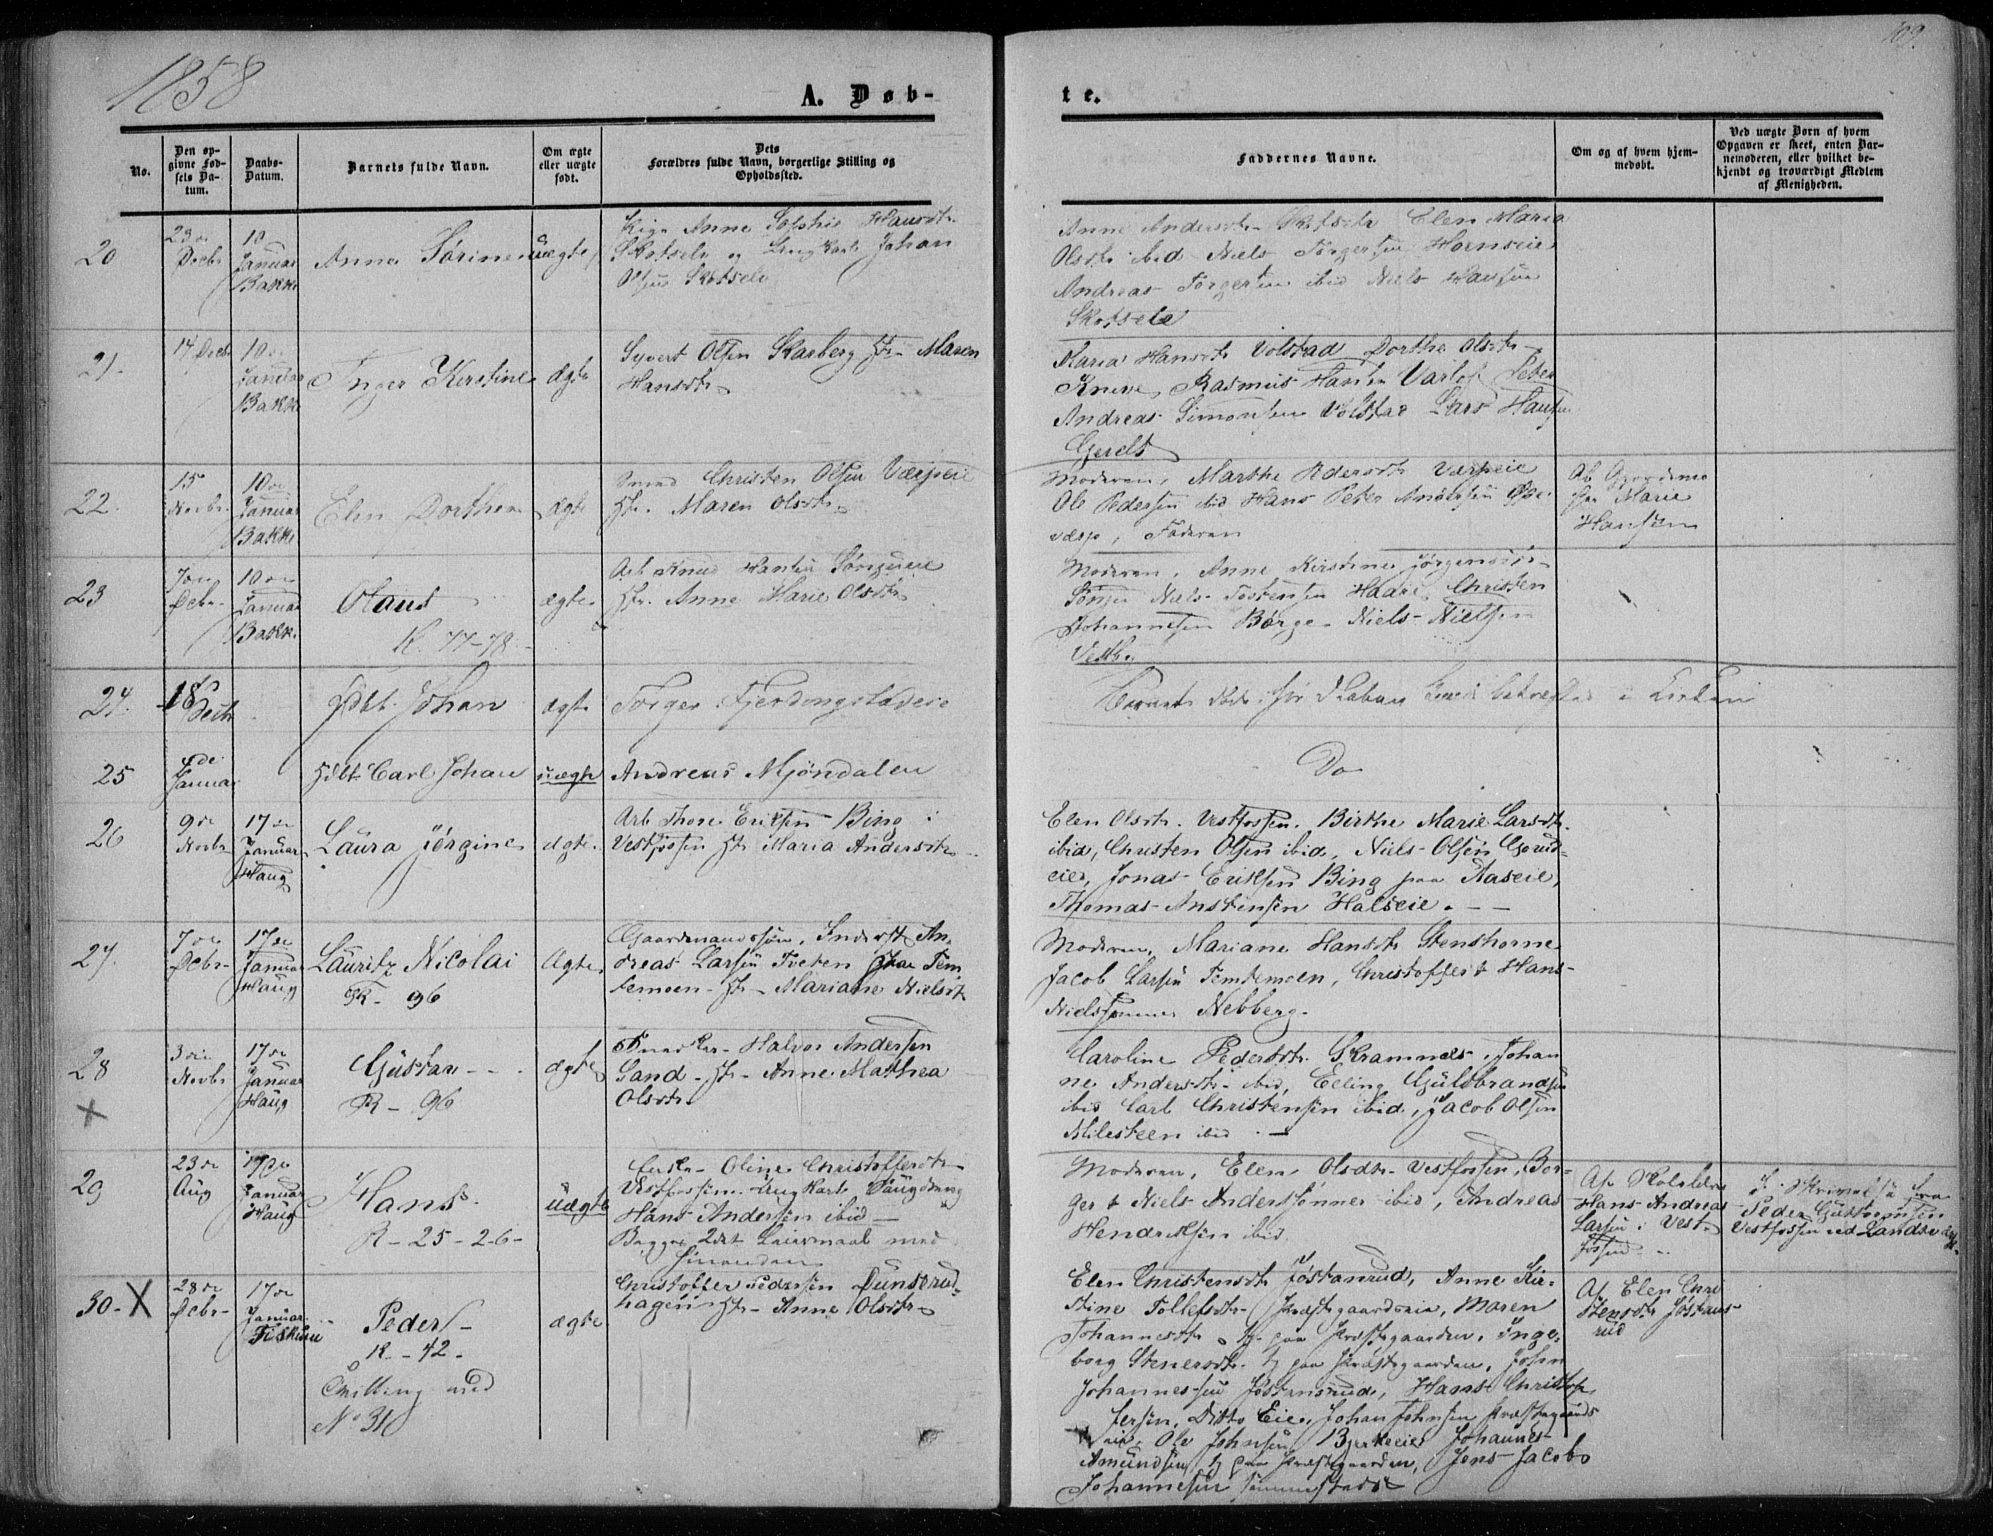 1858
109.
A. Døb-
te.
No.
Den op-
givne Fød-
sels Da-
tum.
Daabs-
Datum.
Barnets fulde Navn.
Om ægte
eller uægte
født.
Dets
Forældres fulde Navn, borgerlige Stilling og
Opholdssted.
Faddernes Navne.
Om og af hvem hjem-
medøbt.
Ved uægte Børn af hvem
Opgaven er skeet, enten Bar-
nemoderen, eller hvilket be-
kjendt og troværdigt Medlem
af Menigheden.
20
23de
Decbr
10
Januar
Bakke
Anne Sørine
uægte
Pige Anne Sophie Hansdtr
Skotselv og Ungkarl Johan
Olsen Skotselv
Anne Andersdtr Skotselv Elen Maria
Olsdtr ibid Niels Torgersen Hornseie
Andreas Torgersen ibid Niels Hansen
Skotselv
21.
14 Decbr
10de
Januar
Bakke
Inger Kirstine
ægte
Syvert Olsen Skarberg Hst. Maren
Hansdtr
Maria Hansdtr Volstad Dorthe Olsdtr
Knive, Rasmus Hansen Varlo Peter
Andreas Simonsen Volstad Lars Hansen
22.
15
Novbr.
10de
Januar
Bakke
Elen Dorthea
ægte
Christen Olsen Væspeie
Hst. Maren Olsdtr
Moderen, Marthe Pedersdtr Væspeie
Ole Pedersen ibid Hans Peter Andersen Øvre
væsp, Faderen
Af Gjordemo
Marie
Hansen
23
7de
Decbr.
10de
Januar
Bakke
Olaus
K. 77-78
ægte
Arb Knud Hansen
Hst. Anne Marie Olsdtr
Moderen, Anne Kirstine Jørgensdtr
Niels Tostensen Haare, Christen
Johannesen Børge Niels Nielsen
24.
18
Hdbt Johan
ægte
Torger Fjerdingstadeie
Barnet døde før Daaben blev bekræftet i Kirken
25
4de
Januar
Hdbt Carl Johan
uægte
Andreas Mjøndalen
Do
26
9de
Novbr
17de
Januar
Haug
Laura Jørgine
ægte.
Arb Thore Eriksen Bing i
Vestfossen Hst Maria Andersdtr
Elen Olsdtr. Vestfossen. Birthe Marie Larsdtr.
ibid, Christen Olsen ibid, Niels Olsen Gorud-
eie, Jonas Eriksen Bing paa Aaseie,
Thomas Anstensen Halseie. - -
27.
7de
Decbr
17de
Januar
Haug
Lauritz Nicolai
R - 96
Ægte
Gaardmandssøn, Inderst An-
dreas Larsen Tveten Tem
temoen Hst Mariane Nielsdtr
Moderen, Mariane Hansdtr Stenshorne
Jacob Larsen Temtemoen, Christoffer & Hans
Nielssønner Nebberg.
28
X
3die
Novbr
17de
Januar
Haug
Gustav - -
R - 96
ægte
Snedker Halvor Andersen
Sand Hst Anne Mathea
Olsdtr
Caroline Pedersdtr. Skramnes, Johan
ne Andersdtr ibid, Elling Guldbrandsen
ibid Carl Christensen ibid, Jacob Olsen
Milesteen ibid. -
29
23de
Aug
17de
Januar
Haug
Hans
R - 25 - 26 -
uægte
Oline Christoffersdtr
Vestfossen. Ungkarl
Hans Andersen ibid -
Begges 2det Leiermaal med
hinanden
Moderen, Elen Olsdtr Vestfossen, Bor-
ger & Niels Anderssønner ibid, Andreas
Hendriksen ibid
Af Skolelærer
Hans Andreas
Larsen i Vest-
fossen. -
fra
Peder
Vestfossen ved
30 - X
28de
Decbr
17de
Januar
Fiskum
Peder
R. - 42 -
Tvilling med
No 31
ægte
Christoffer Pedersen Dunserud-
hagen Hst Anne Olsdtr
Elen Christensdtr Jøstansrud, Anne Kir-
stine Tollefsdtr Præstegaardseie, Maren
Johannesdtr, Tj. paa Præstegaarden, Inge-
borg Stenersdtr Tj paa Præstegaarden, John
Johannessen Jøstansrud, Hans Christof
fersen, Ditto Eie, Johan Johnsen Præstegaards
eie, Ole Johnsen Bjerkeeie Johannes
Amundsen Tj paa Præstegaarden, Jens Jacob
Johannesen
Af Elen Chri
stensdtr Jøstans-
rud